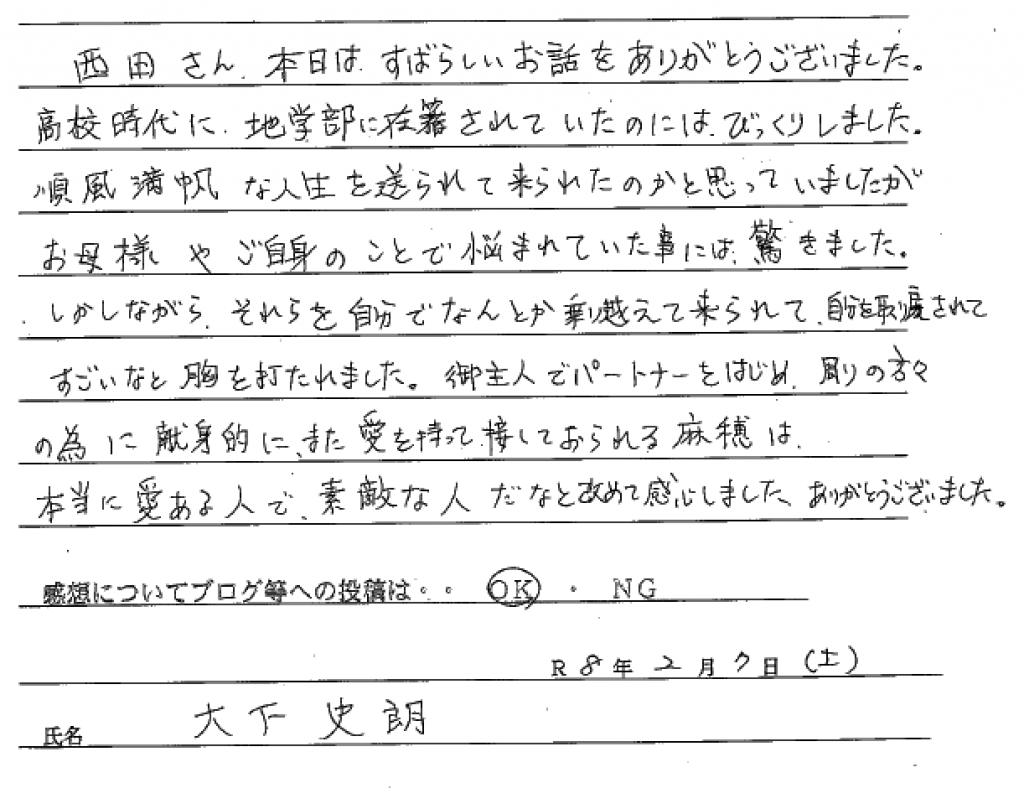 西田さん、本日は、すばらしいお話をありがとうございました。
高校時代に、地学部に在籍されていたのには、びっくりしました。
順風満帆な人生を送られて来られたのかと思っていましたが
お母様やご自身のことで悩まれていた事には、驚きました。
しかしながら、それらを自分でなんとか乗り越えて来られて、自分を取り戻されて
すごいなと胸を打たれました。御主人でパートナーをはじめ、周りの方々
の為に献身的に、また愛を持って接しておられる麻穂は、
本当に愛ある人で、素敵な人だなと改めて感心しました、ありがとうございました。
感想についてブログ等への投稿は・・ OK ・ NG
R 8 年 2 月 7 日 (土)
氏名 大下 史朗